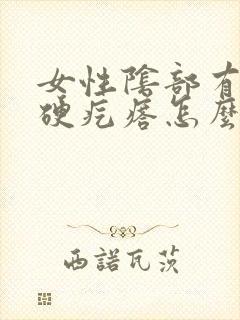 女性陰部有
硬疙瘩怎麼
西諾瓦茨